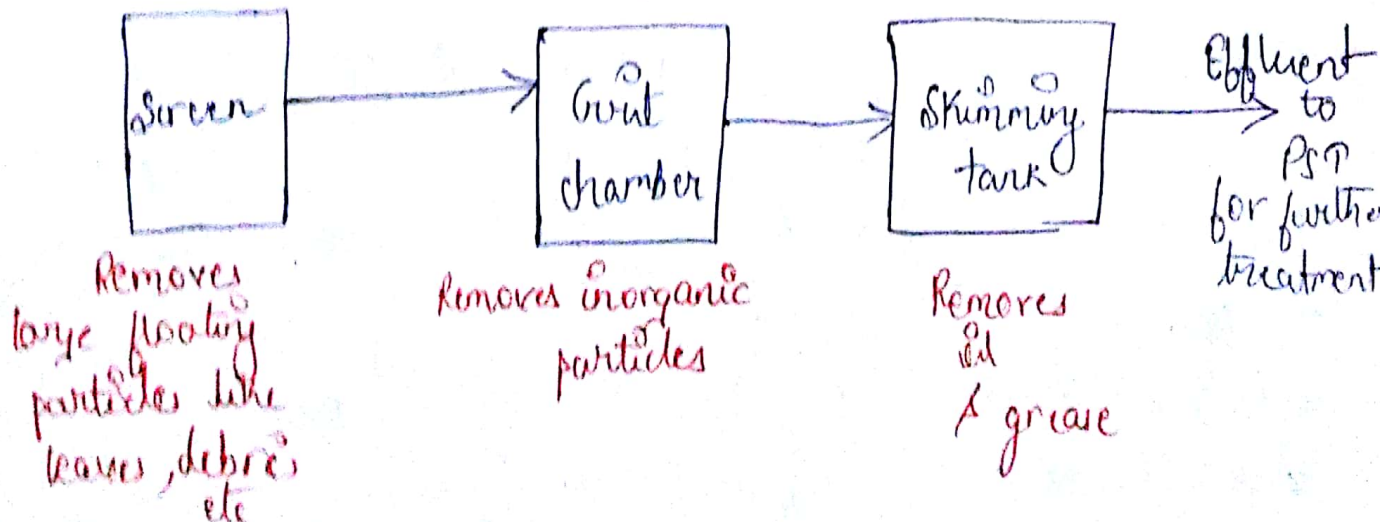 Screen
Grit
chamber
Skimming
tank
Effluent
to
PST
for further
treatment
Removes
large floating
particles like
leaves, debris
etc
Removes inorganic
particles
Removes
oil
& grease